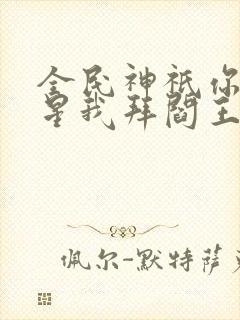 全民神祇你
星我拜阎王
佩尔-默特萨